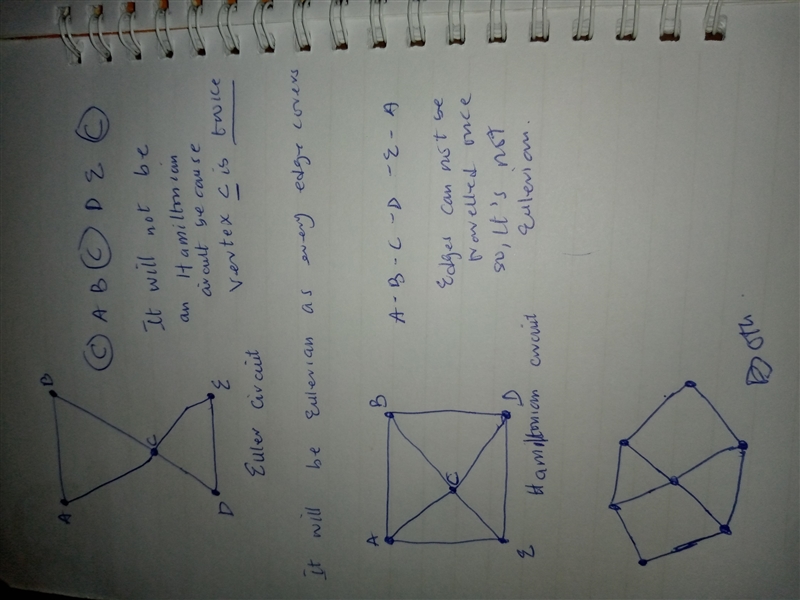 A
B
C
D
E
Ⓒ A B Ⓒ D E Ⓒ
It will not be
an Hamiltonian
circuit because
vertex C is twice
Euler Circuit
It will be Eulerian as every edge covers
A
B
C
E
D
A - B - C - D - E - A
Edges can not be
travelled once
so, It's not
Eulerian.
Hamiltonian circuit
Both.